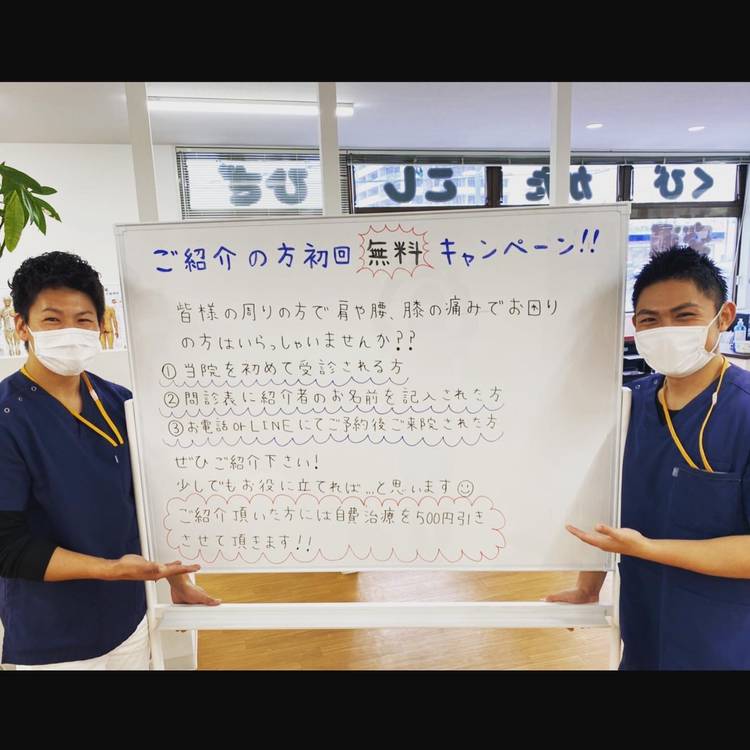 くび かた こし ひざ
ご紹介の方初回 無料 キャンペーン!!
皆様の周りの方で肩や腰、膝の痛みでお困り
の方はいらっしゃいませんか??
① 当院を初めて受診される方
② 問診表に紹介者のお名前を記入された方
③ お電話orLINEにてご予約後ご来院された方
ぜひご紹介下さい!
少しでもお役に立てれば...と思います☺
ご紹介頂いた方には自費治療を500円引き
させて頂きます!!